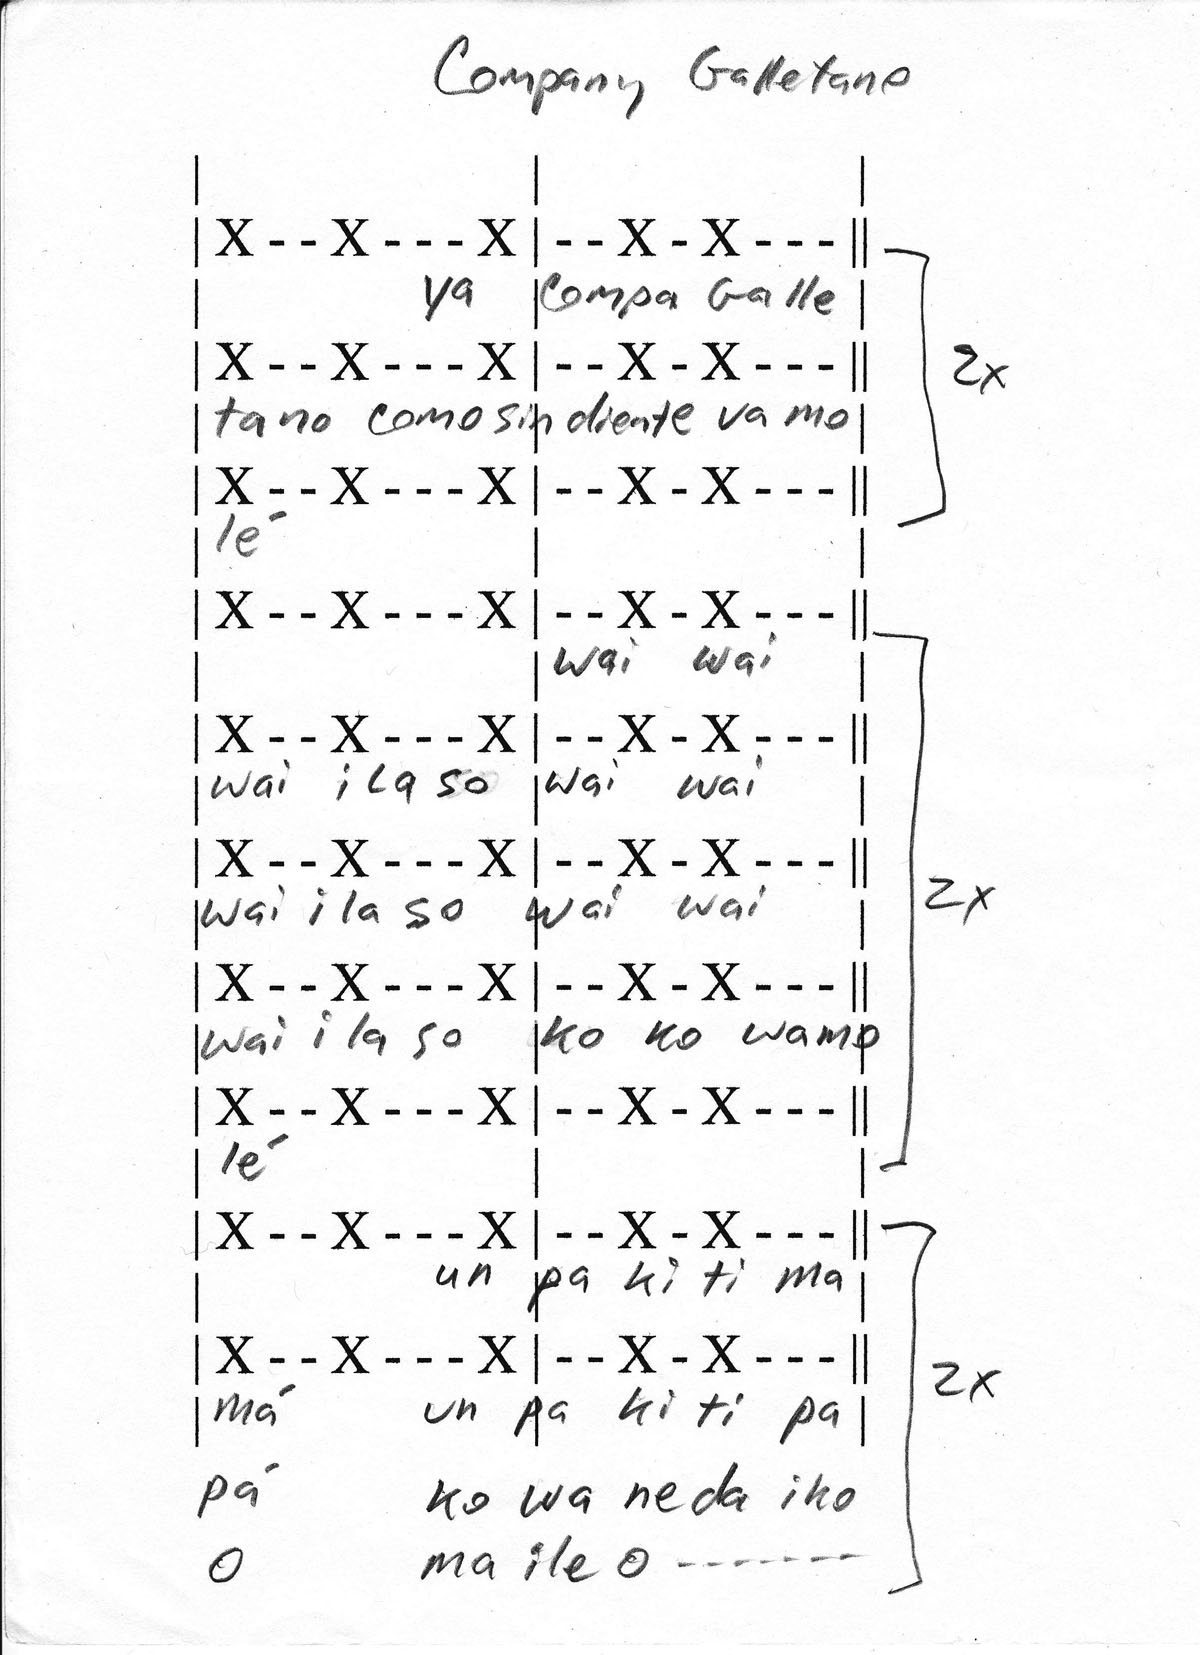 Company Galletano
X--X---X|--X-X---||
ya compa Galle
X--X---X|--X-X---||
tano como sin diente va mo
X--X---X|--X-X---||
lé
X--X---X|--X-X---||
wai wai
X--X---X|--X-X---||
wai i la so wai wai
X--X---X|--X-X---||
wai i la so wai wai
X--X---X|--X-X---||
wai i la so ko ko wamo
X--X---X|--X-X---||
lé
X--X---X|--X-X---||
un pa ki ti ma
X--X---X|--X-X---||
má un pa ki ti pa
pá ko wa ne da iko
o ma ile o -------
2x
2x
2x